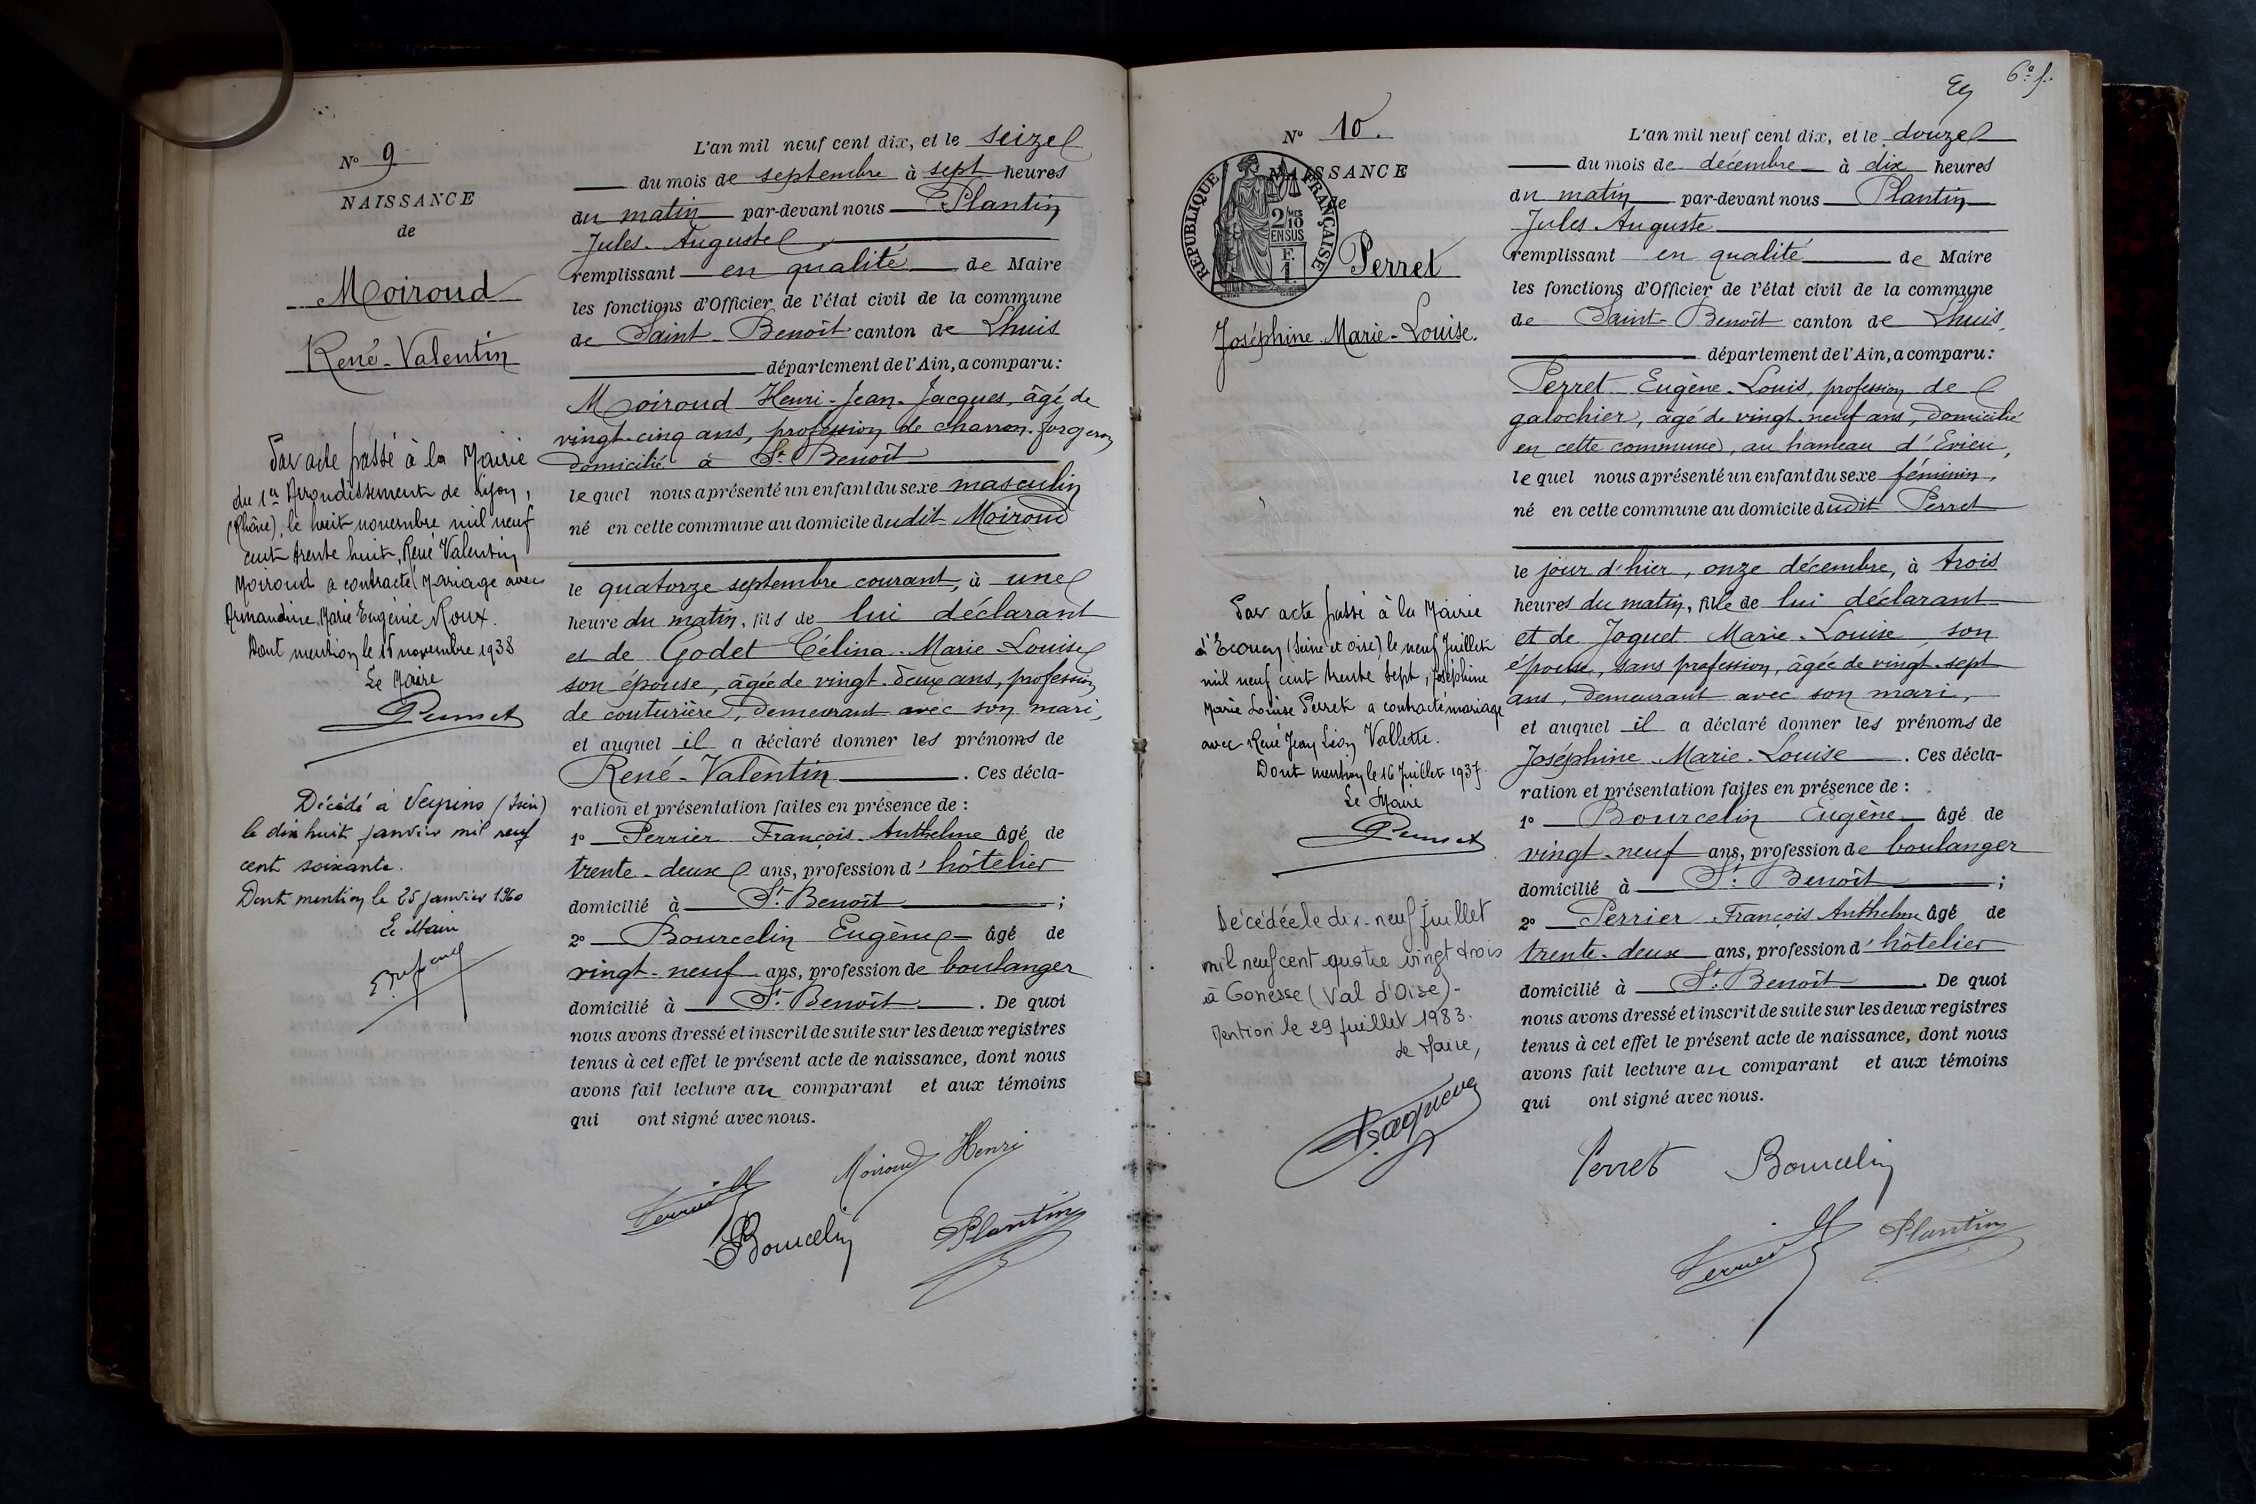 N° 9
NAISSANCE
de
Moiroud
René-Valentin
Par acte passé à la Mairie
du 1er Arrondissement de Lyon,
(Rhône), le huit novembre mil neuf
cent trente huit, René Valentin
Moiroud a contracté Mariage avec
Armandine, Marie Eugénie Roux.
Dont mention le 15 novembre 1938
Le Maire
Décédé à Veyrins (Isère)
le dix huit janvier mil neuf
cent soixante.
Dont mention le 25 janvier 1960
Le Maire
L'an mil neuf cent dix, et le seize
du mois de septembre à sept heures
du matin par-devant nous Plantin
Jules-Auguste
remplissant en qualité de Maire
les fonctions d'Officier de l'état civil de la commune
de Saint-Benoît canton de Lhuis
département de l'Ain, a comparu:
Moiroud Henri-Jean-Jacques, âgé de
vingt-cinq ans, profession de charron-forgeron,
domicilié à St Benoît
lequel nous a présenté un enfant du sexe masculin
né en cette commune au domicile dudit Moiroud
le quatorze septembre courant, à une
heure du matin, fils de lui déclarant
et de Godet Célina-Marie-Louise
son épouse, âgée de vingt-deux ans, profession
de couturière, demeurant avec son mari,
et auquel il a déclaré donner les prénoms de
René-Valentin. Ces décla-
ration et présentation faites en présence de :
1° Perrier François-Anthelme âgé de
trente-deux ans, profession d'hôtelier
domicilié à St. Benoît ;
2° Bourcelin Eugène âgé de
vingt-neuf ans, profession de boulanger
domicilié à St. Benoît. De quoi
nous avons dressé et inscrit de suite sur les deux registres
tenus à cet effet le présent acte de naissance, dont nous
avons fait lecture au comparant et aux témoins
qui ont signé avec nous.
Moiroud Henri
Perrier
Bourcelin
Plantin
6e f.
N° 10.
NAISSANCE
de
RÉPUBLIQUE FRANÇAISE
2/10 EN SUS
F. 1
Perret
Joséphine-Marie-Louise.
Par acte passé à la Mairie
d'Ecouen (Seine et Oise), le neuf Juillet
mil neuf cent trente sept, Joséphine
Marie Louise Perret a contracté mariage
avec René Jean Léon Vallette.
Dont mention le 16 Juillet 1937.
Le Maire
Décédée le dix-neuf juillet
mil neuf cent quatre vingt trois
à Gonesse (Val d'Oise)-
Mention le 29 juillet 1983.
Le Maire,
L'an mil neuf cent dix, et le douze
du mois de décembre à dix heures
du matin par-devant nous Plantin
Jules-Auguste
remplissant en qualité de Maire
les fonctions d'Officier de l'état civil de la commune
de Saint-Benoît canton de Lhuis,
département de l'Ain, a comparu:
Perret Eugène-Louis, profession de
galochier, âgé de vingt-neuf ans, domicilié
en cette commune, au hameau d'Evieu,
lequel nous a présenté un enfant du sexe féminin,
né en cette commune au domicile dudit Perret
le jour d'hier, onze décembre, à trois
heures du matin, fille de lui déclarant
et de Joguet Marie-Louise son
épouse, sans profession, âgée de vingt-sept
ans, demeurant avec son mari,
et auquel il a déclaré donner les prénoms de
Joséphine-Marie-Louise. Ces décla-
ration et présentation faites en présence de :
1° Bourcelin Eugène âgé de
vingt-neuf ans, profession de boulanger
domicilié à St. Benoît ;
2° Perrier François Anthelme âgé de
trente-deux ans, profession d'hôtelier
domicilié à St. Benoît. De quoi
nous avons dressé et inscrit de suite sur les deux registres
tenus à cet effet le présent acte de naissance, dont nous
avons fait lecture au comparant et aux témoins
qui ont signé avec nous.
Perret Bourcelin
Perrier Plantin